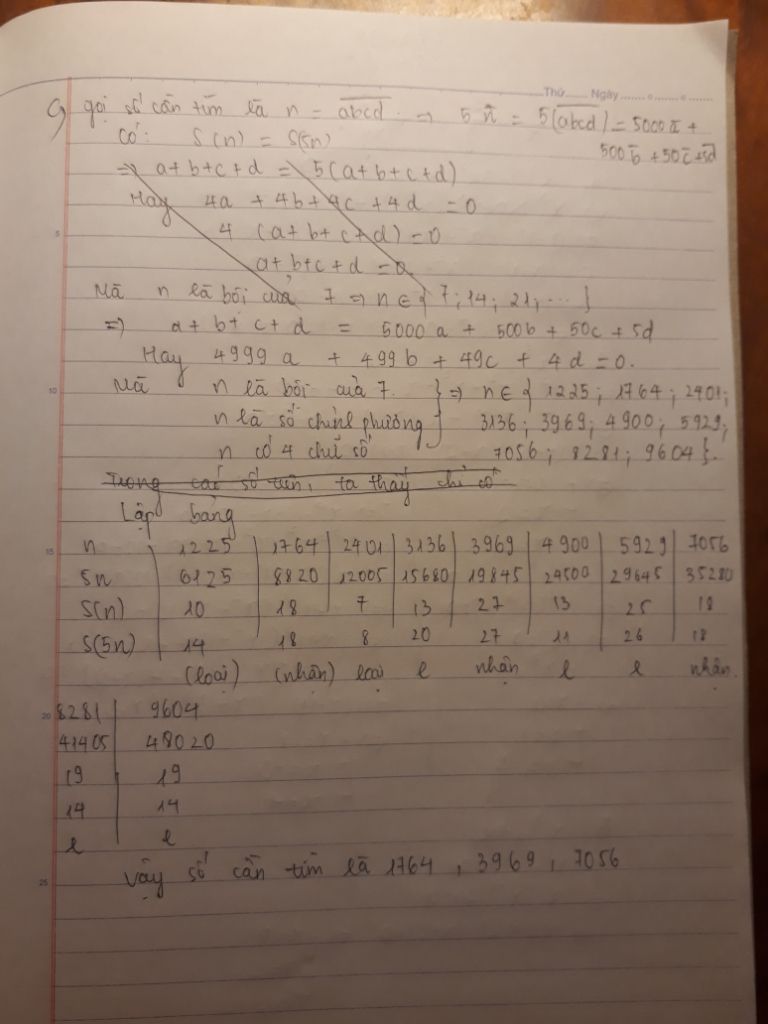 Thứ Ngày
9) gọi số cần tìm là n = abcd. => 5n = 5(abcd) = 5000a +
500b + 50c + 5d
Có: S(n) = S(5n)
=> a+b+c+d = 5(a+b+c+d)
Hay 4a + 4b + 4c + 4d = 0
5
4 (a+b+c+d) = 0
a+b+c+d = 0
Mà n là bội của 7 => n ∈ { 7; 14; 21; ... }
=> a+b+c+d = 5000a + 500b + 50c + 5d
Hay 4999a + 499b + 49c + 4d = 0.
10
Mà n là bội của 7. } => n ∈ { 1225; 1764; 2401;
n là số chính phương } 3136; 3969; 4900; 5929;
n có 4 chữ số 7056; 8281; 9604 }.
Trong các số trên, ta thấy chỉ có
Lập bảng
15
n 1225 1764 2401 3136 3969 4900 5929 7056
5n 6125 8820 12005 15680 19845 24500 29645 35280
S(n) 10 18 7 13 27 13 25 18
S(5n) 14 18 8 20 27 11 26 18
(loại) (nhận) loại l nhận l l nhận.
20
8281 9604
41405 48020
19 19
14 14
l l
Vậy số cần tìm là 1764, 3969, 7056
25